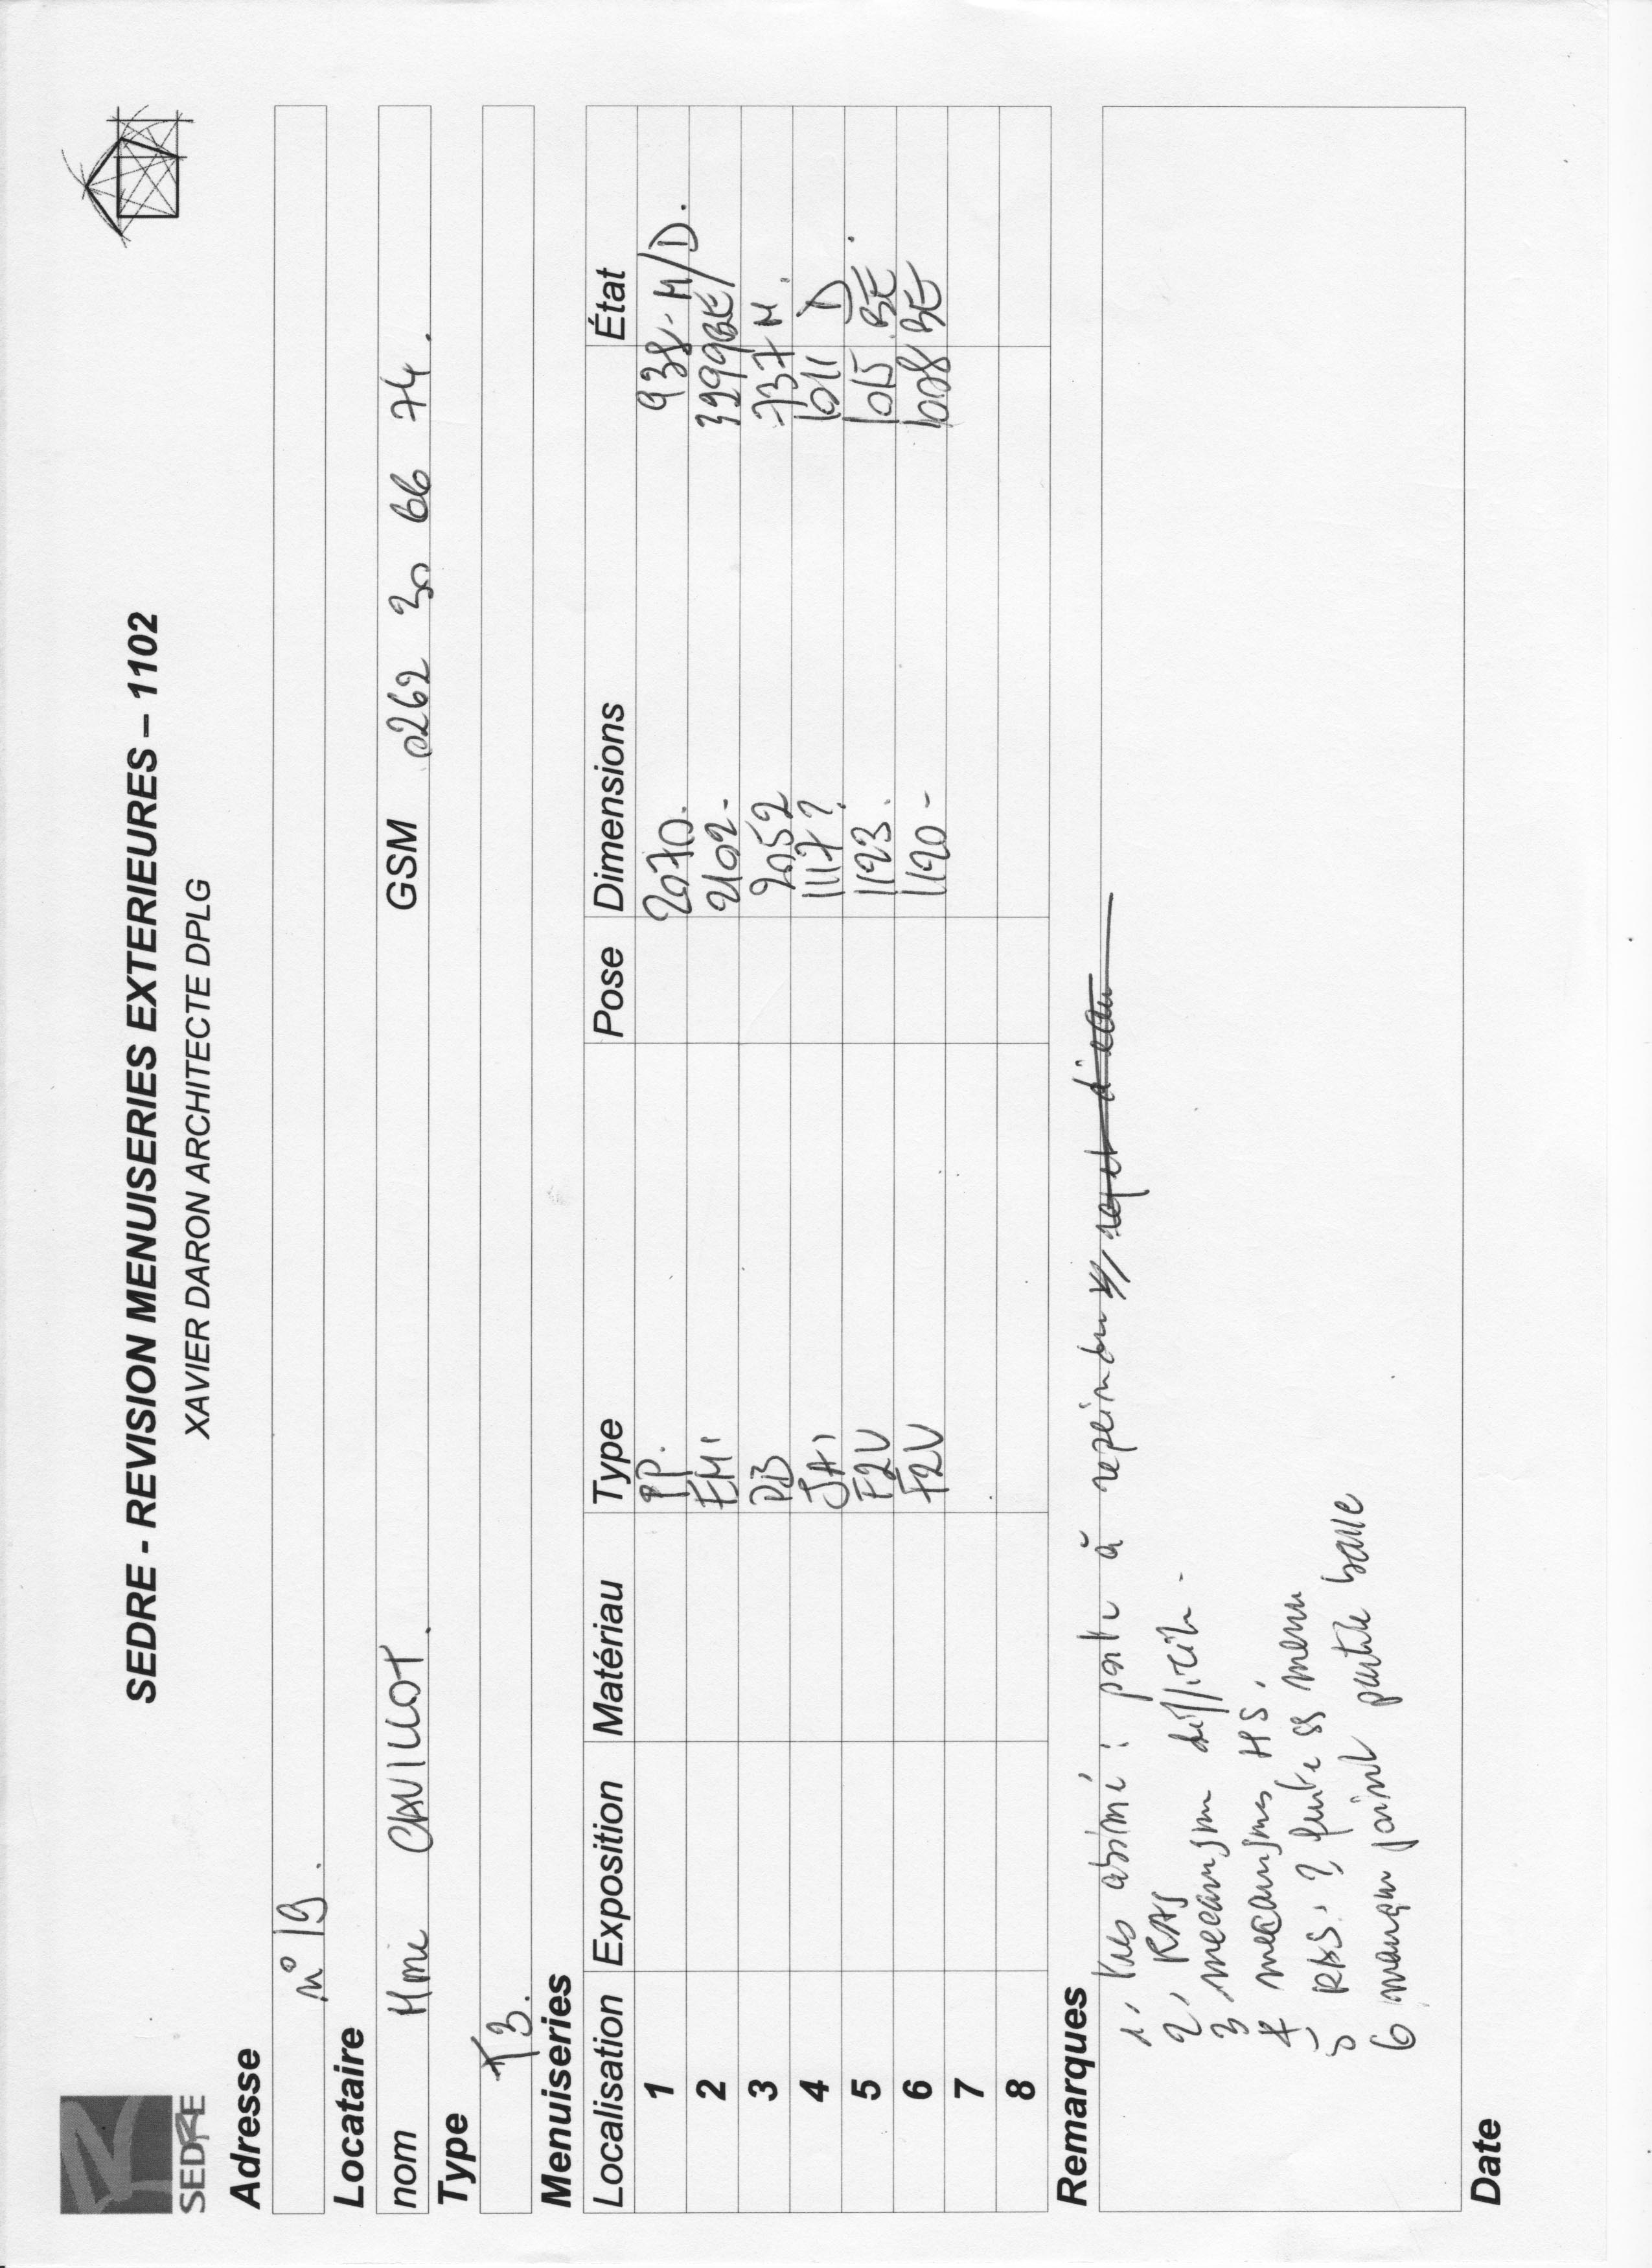 SEDRE
SEDRE - REVISION MENUISERIES EXTERIEURES – 1102
XAVIER DARON ARCHITECTE DPLG
Adresse
n° 19.
Locataire
nom Mme CAVILLOT. GSM 0262 30 66 74.
Type
T3.
Menuiseries
Localisation Exposition Matériau Type Pose Dimensions État
1 PP. 2070. 938 - M/D.
2 EM1 2102. 3299 BE/
3 PB 2052 737 M.
4 JA1 1117? 1011 D
5 F2V 1123. 1015 BE.
6 F2V 1120 - 1008 BE
7
8
Remarques
1. abîmé : porte à repeindre rejet d'eau
2. RAS
3 mecanisme difficile -
4 mecanismes HS.
5 RAS. ? fuite ss menu
6 manque joint partie basse
Date